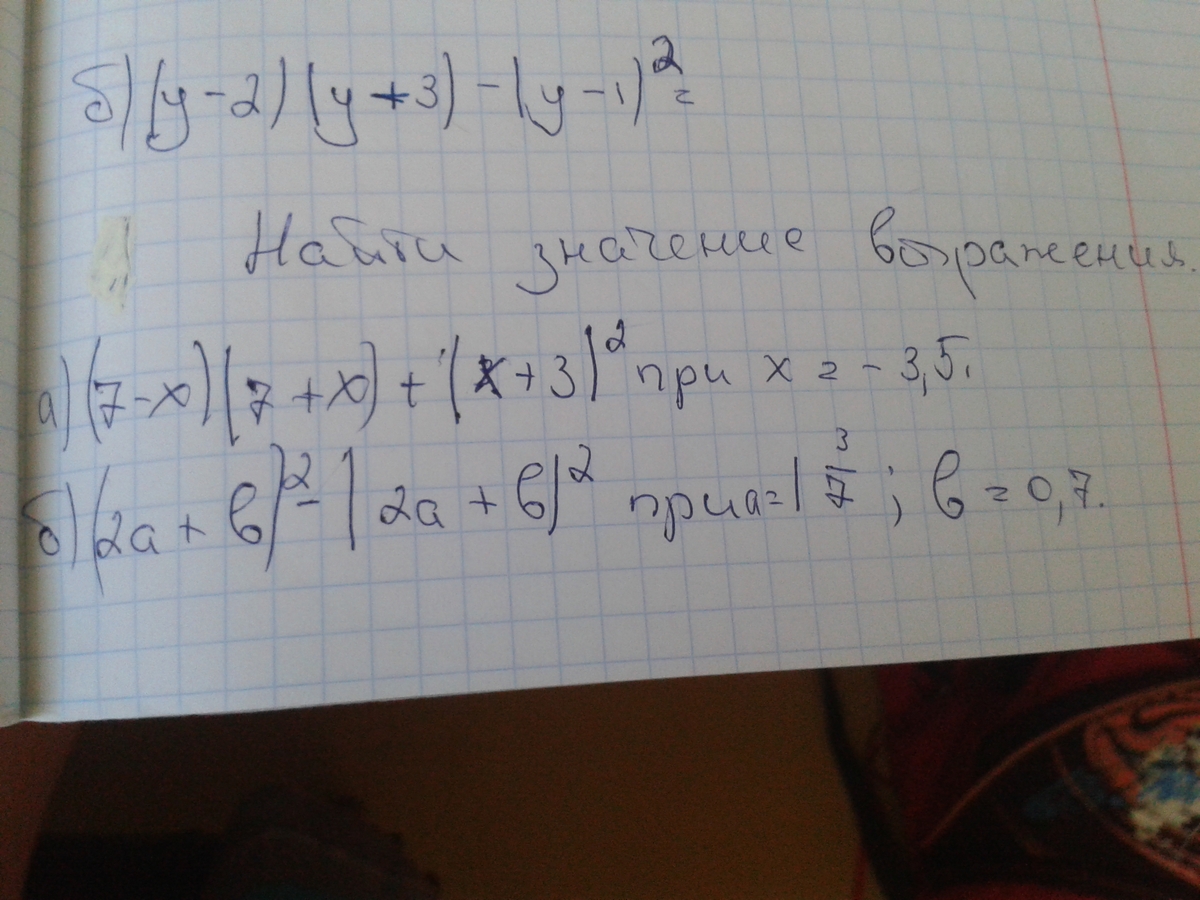 б) (y-2) (y+3) - (y-1)² =
Найти значение выражения.
а) (7-x) (7+x) + (x+3)² при x = -3,5.
б) (2a+b)² - (2a+b)² при a=1 3/7; b=0,7.